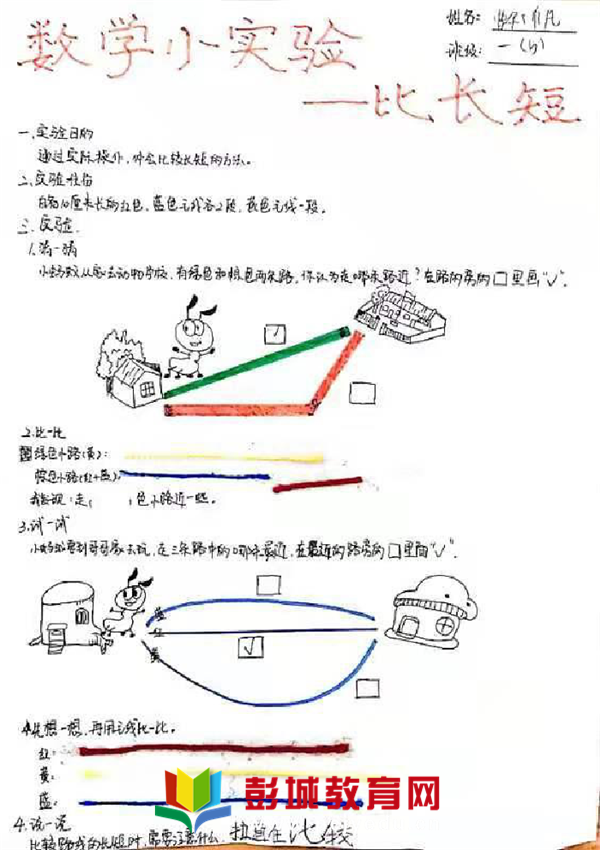 数学小实验
——比长短
姓名：
班级：一（4）
一、实验目的
通过实际操作，体会比较长短的方法。
二、实验准备
长的红色、蓝色毛线各2段，黄色毛线一段。
三、实验
1.猜一猜
小蚂蚁从家去动物学校，有绿色和棕色两条路，你认为走哪条路近？在路的旁的□里画“√”。
2.比一比
绿色小路（黄）：
棕色小路（红+蓝）：
我发现：走（　　）色小路近一些。
3.试一试
小蚂蚁要到哥哥家去玩，在三条路中的哪条最近，在最近的路旁的□里画“√”。
蓝
红
黄
4.先想一想，再用毛线比一比。
红：
黄：
蓝：
彭城教育网
4.说一说
比较路线的长短时，需要注意什么，拉直在比较